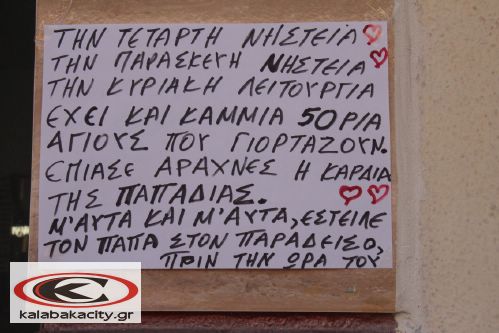 ΤΗΝ ΤΕΤΑΡΤΗ ΝΗΣΤΕΙΑ
ΤΗΝ ΠΑΡΑΣΚΕΥΗ ΝΗΣΤΕΙΑ
ΤΗΝ ΚΥΡΙΑΚΗ ΛΕΙΤΟΥΡΓΙΑ
ΕΧΕΙ ΚΑΙ ΚΑΜΜΙΑ 50ΡΙΑ
ΑΓΙΟΥΣ ΠΟΥ ΓΙΟΡΤΑΖΟΥΝ.
ΕΠΙΑΣΕ ΑΡΑΧΝΕΣ Η ΚΑΡΔΙΑ
ΤΗΣ ΠΑΠΑΔΙΑΣ.
Μ'ΑΥΤΑ ΚΑΙ Μ'ΑΥΤΑ, ΕΣΤΕΙΛΕ
ΤΟΝ ΠΑΠΑ ΣΤΟΝ ΠΑΡΑΔΕΙΣΟ,
ΠΡΙΝ ΤΗΝ ΩΡΑ ΤΟΥ
kalabakacity.gr